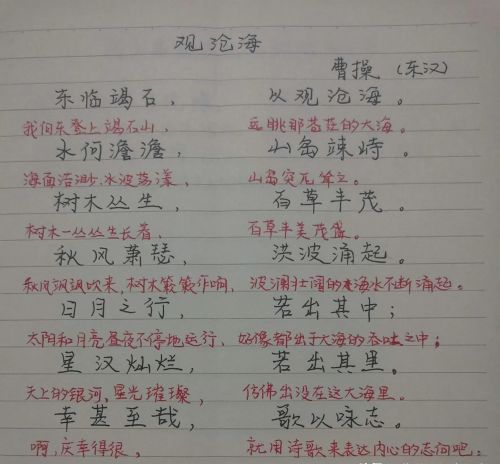 观沧海
曹操（东汉）
东临竭石，以观沧海。
我向东登上竭石山，远眺那苍茫的大海。
水何澹澹，山岛竦峙。
海面浩渺，水波荡漾，山岛突兀耸立。
树木丛生，百草丰茂。
树木一丛丛生长着，百草丰美茂盛。
秋风萧瑟，洪波涌起。
秋风飒飒吹来，树木簌簌作响，波澜壮阔的海水不断涌起。
日月之行，若出其中；
太阳和月亮昼夜不停地运行，好像都出于大海的吞吐之中；
星汉灿烂，若出其里。
天上的银河，星光璀璨，仿佛出没在这大海里。
幸甚至哉，歌以咏志。
啊，庆幸得很，就用诗歌来表达内心的志向吧。